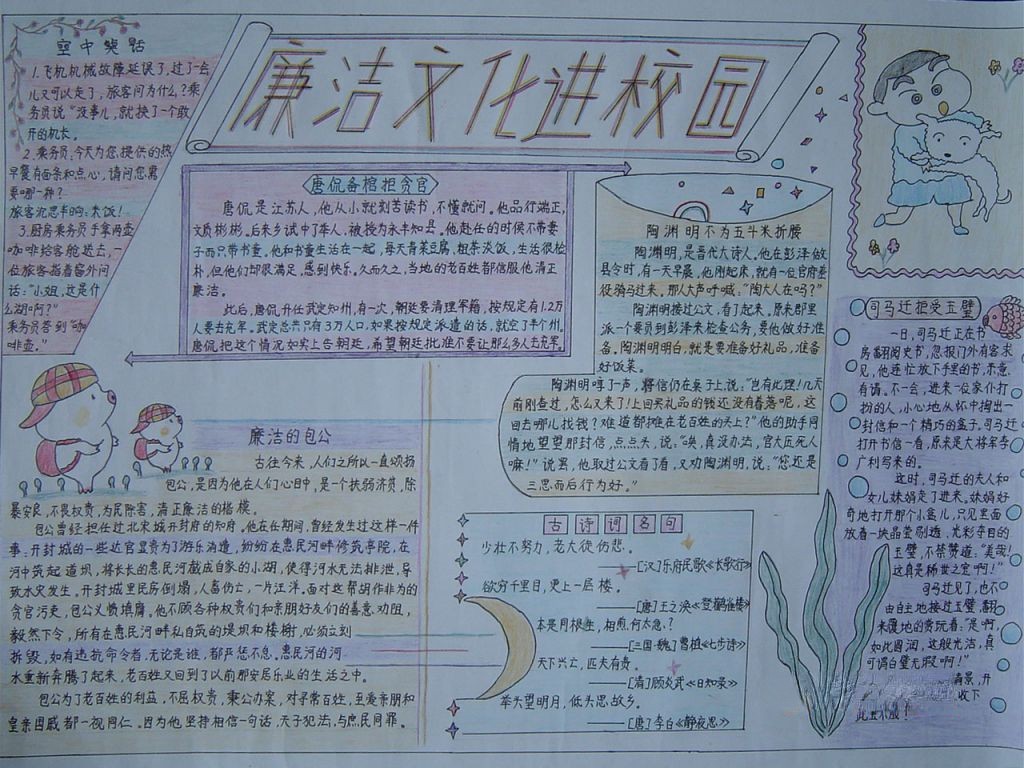 廉洁文化进校园
空中笑话
1.飞机机械故障延误了,过了一会
儿又可以走了,旅客问为什么?乘
务员说"没事儿,就换了一个敢
开的机长。
2.乘务员:今天为您提供的热
早餐有面条和点心,请问您需
要哪一种?
旅客沉思半晌:来饭!
3.厨房乘务员手拿两壶
咖啡给客舱送去,一
位旅客指着窗外问
话:"小姐,这是什
么湖啊?"
乘务员答到"咖
啡壶。"
唐侃备棺拒贪官
唐侃是江苏人,他从小就刻苦读书,不懂就问。他品行端正,
文质彬彬。后来乡试中了举人,被授为永丰知县。他赴任的时候不带妻
子而只带书童,他和书童生活在一起,每天青菜豆腐,粗茶淡饭,生活很俭
朴,但他们却很满足,感到快乐。久而久之,当地的老百姓都信服他清正
廉洁。
此后,唐侃升任武定知州,有一次,朝廷要清理军籍,按规定有1.2万
人要去充军。武定总共只有3万人口,如果按规定派遣的话,就空了半个州。
唐侃把这个情况如实上告朝廷,希望朝廷批准不要让那么多人去充军。
陶渊明不为五斗米折腰
陶渊明,是晋代大诗人。他在彭泽做
县令时,有一天早晨,他刚起床,就有一位官府差
役骑马过来,那人大声呼喊:"陶大人在吗?"
陶渊明接过公文,看了起来,原来郡里
派一个要员到彭泽来检查公务,要他做好准
备。陶渊明明白,就是要准备好礼品,准备
好饭菜。
陶渊明哼了一声,将信仍在桌子上,说:"岂有此理!几天
前刚查过,怎么又来了!上回买礼品的钱还没有着落呢,这
回去哪儿找钱?难道都摊在老百姓的头上?"他的助手同
情地望望那封信,点点头,说:"唉,真没办法,官大压死人
嘛!"说罢,他取过公文看了看,又劝陶渊明,说:"您还是
三思而后行为好。"
司马迁拒受玉璧
一日,司马迁正在书
房翻阅史书,忽报门外有客求
见,他连忙放下手里的书,示意
有请。不一会,进来一位家仆打
扮的人,小心地从怀中掏出一
封信和一个精巧的盒子,司马迁
打开书信一看,原来是大将军李
广利写来的。
这时,司马迁的夫人和
女儿妹娟走了进来。妹娟好
奇地打开那个小盒儿,只见里面
放着一块晶莹剔透、光彩夺目的
玉璧,不禁赞道:"美哉!
这真是稀世之宝啊!"
司马迁见了,也不
由自主地接过玉璧,翻
来覆地的赏玩着。"是啊,
如此圆润,这般光洁,真
可谓白璧无瑕啊!"
廉洁的包公
古往今来,人们之所以一直颂扬
包公,是因为他在人们心目中,是一个扶弱济贫,除
暴安良,不畏权贵,为民除害,清正廉洁的楷模。
包公曾经担任过北宋城开封府的知府。他在任期间,曾经发生过这样一件
事:开封城的一些达官显贵为了游乐消遣,纷纷在惠民河畔修筑亭院,在
河中筑起道坝,将长长的惠民河截成自家的小湖,使得河水无法排泄,导
致水灾发生。开封城里民房倒塌,人畜伤亡,一片汪洋。面对这帮胡作非为的
贪官污吏,包公义愤填膺。他不顾各种权贵们和亲朋好友们的善意劝阻,
毅然下令,所有在惠民河畔私自筑的堤坝和楼榭,必须立刻
拆毁,如有违抗命令者,无论是谁,都严惩不怠。惠民河的河
水重新奔腾了起来,老百姓又回到了以前那安居乐业的生活之中。
包公为了老百姓的利益,不屈权贵,秉公办案,对寻常百姓,至爱亲朋和
皇亲国戚都一视同仁。因为他坚持相信一句话,天子犯法,与庶民同罪。
古诗词名句
少壮不努力,老大徒伤悲。
——[汉]乐府民歌《长歌行》
欲穷千里目,更上一层楼。
——[唐]王之涣《登鹳雀楼》
本是同根生,相煎何太急?
——[三国·魏]曹植《七步诗》
天下兴亡,匹夫有责。
——[清]顾炎武《日知录》
举头望明月,低头思故乡。
——[唐]李白《静夜思》